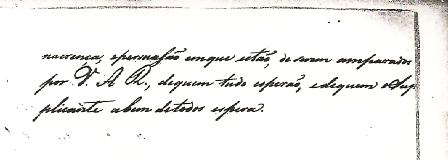 nacrença, epersuasão emque estão, de serem amparados
por V. A. R., dequem tudo esperão, edequem o Sup
plicante obem detodos espera.